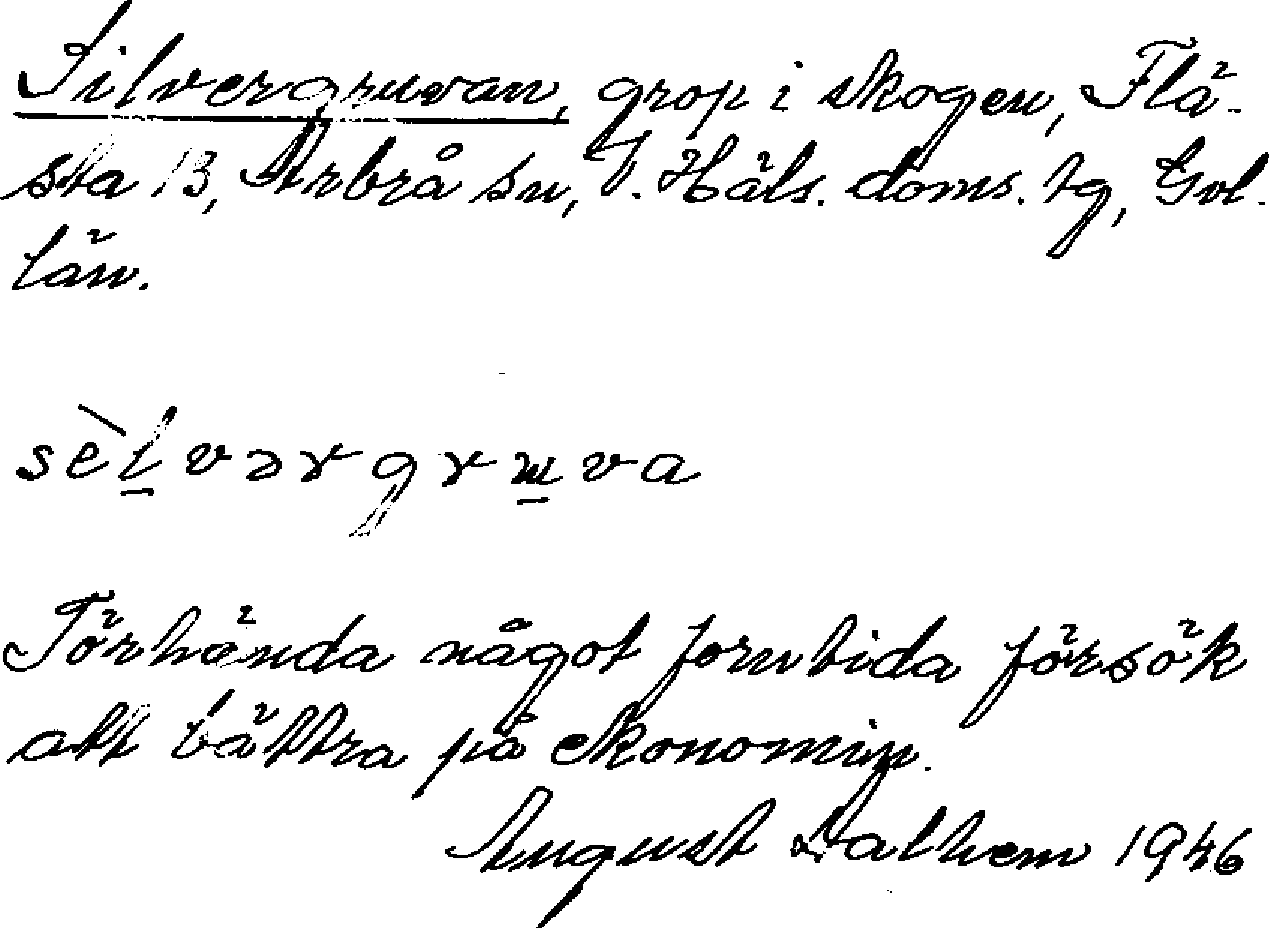 Silvergruvan, grop i skogen, Flä-
sta 13, Arbrå sn, V. Häls. doms. tg, Gvl.
län.
sèlvərgruva
Törhända något forntida försök
att bättra på ekonomin.
August Dalhem 1946